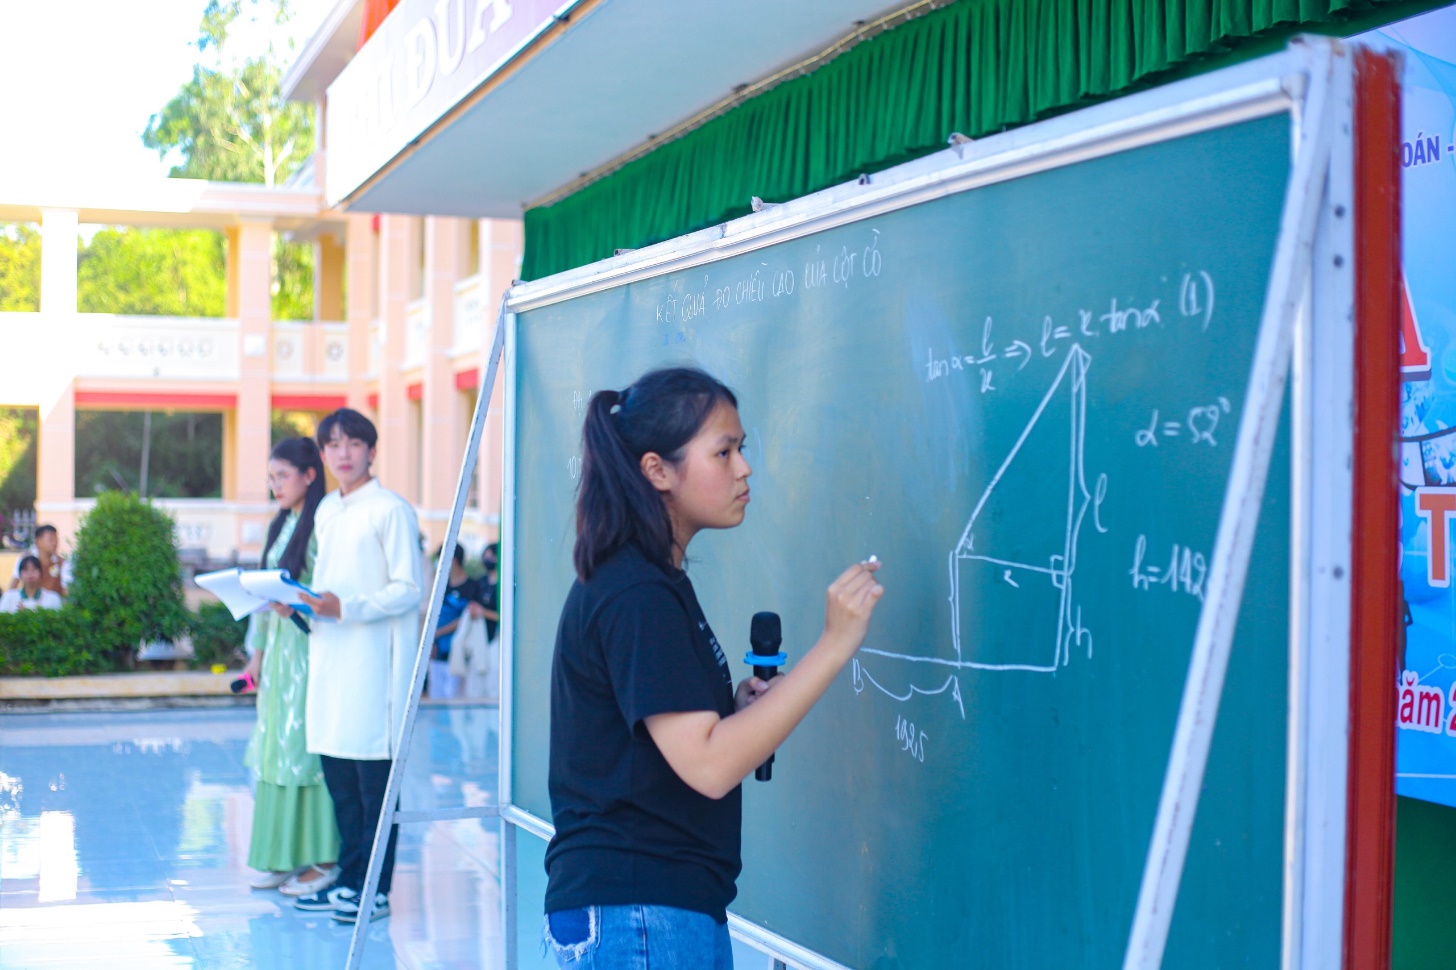 ĐUA
KẾT QUẢ ĐO CHIỀU CAO CỦA CỘT CỜ
tanα = l/x ⇒ l = x. tanα (1)
α = 52°
l
α
x
h
h=142
B
A
1925
OÁN -
T
năm 2